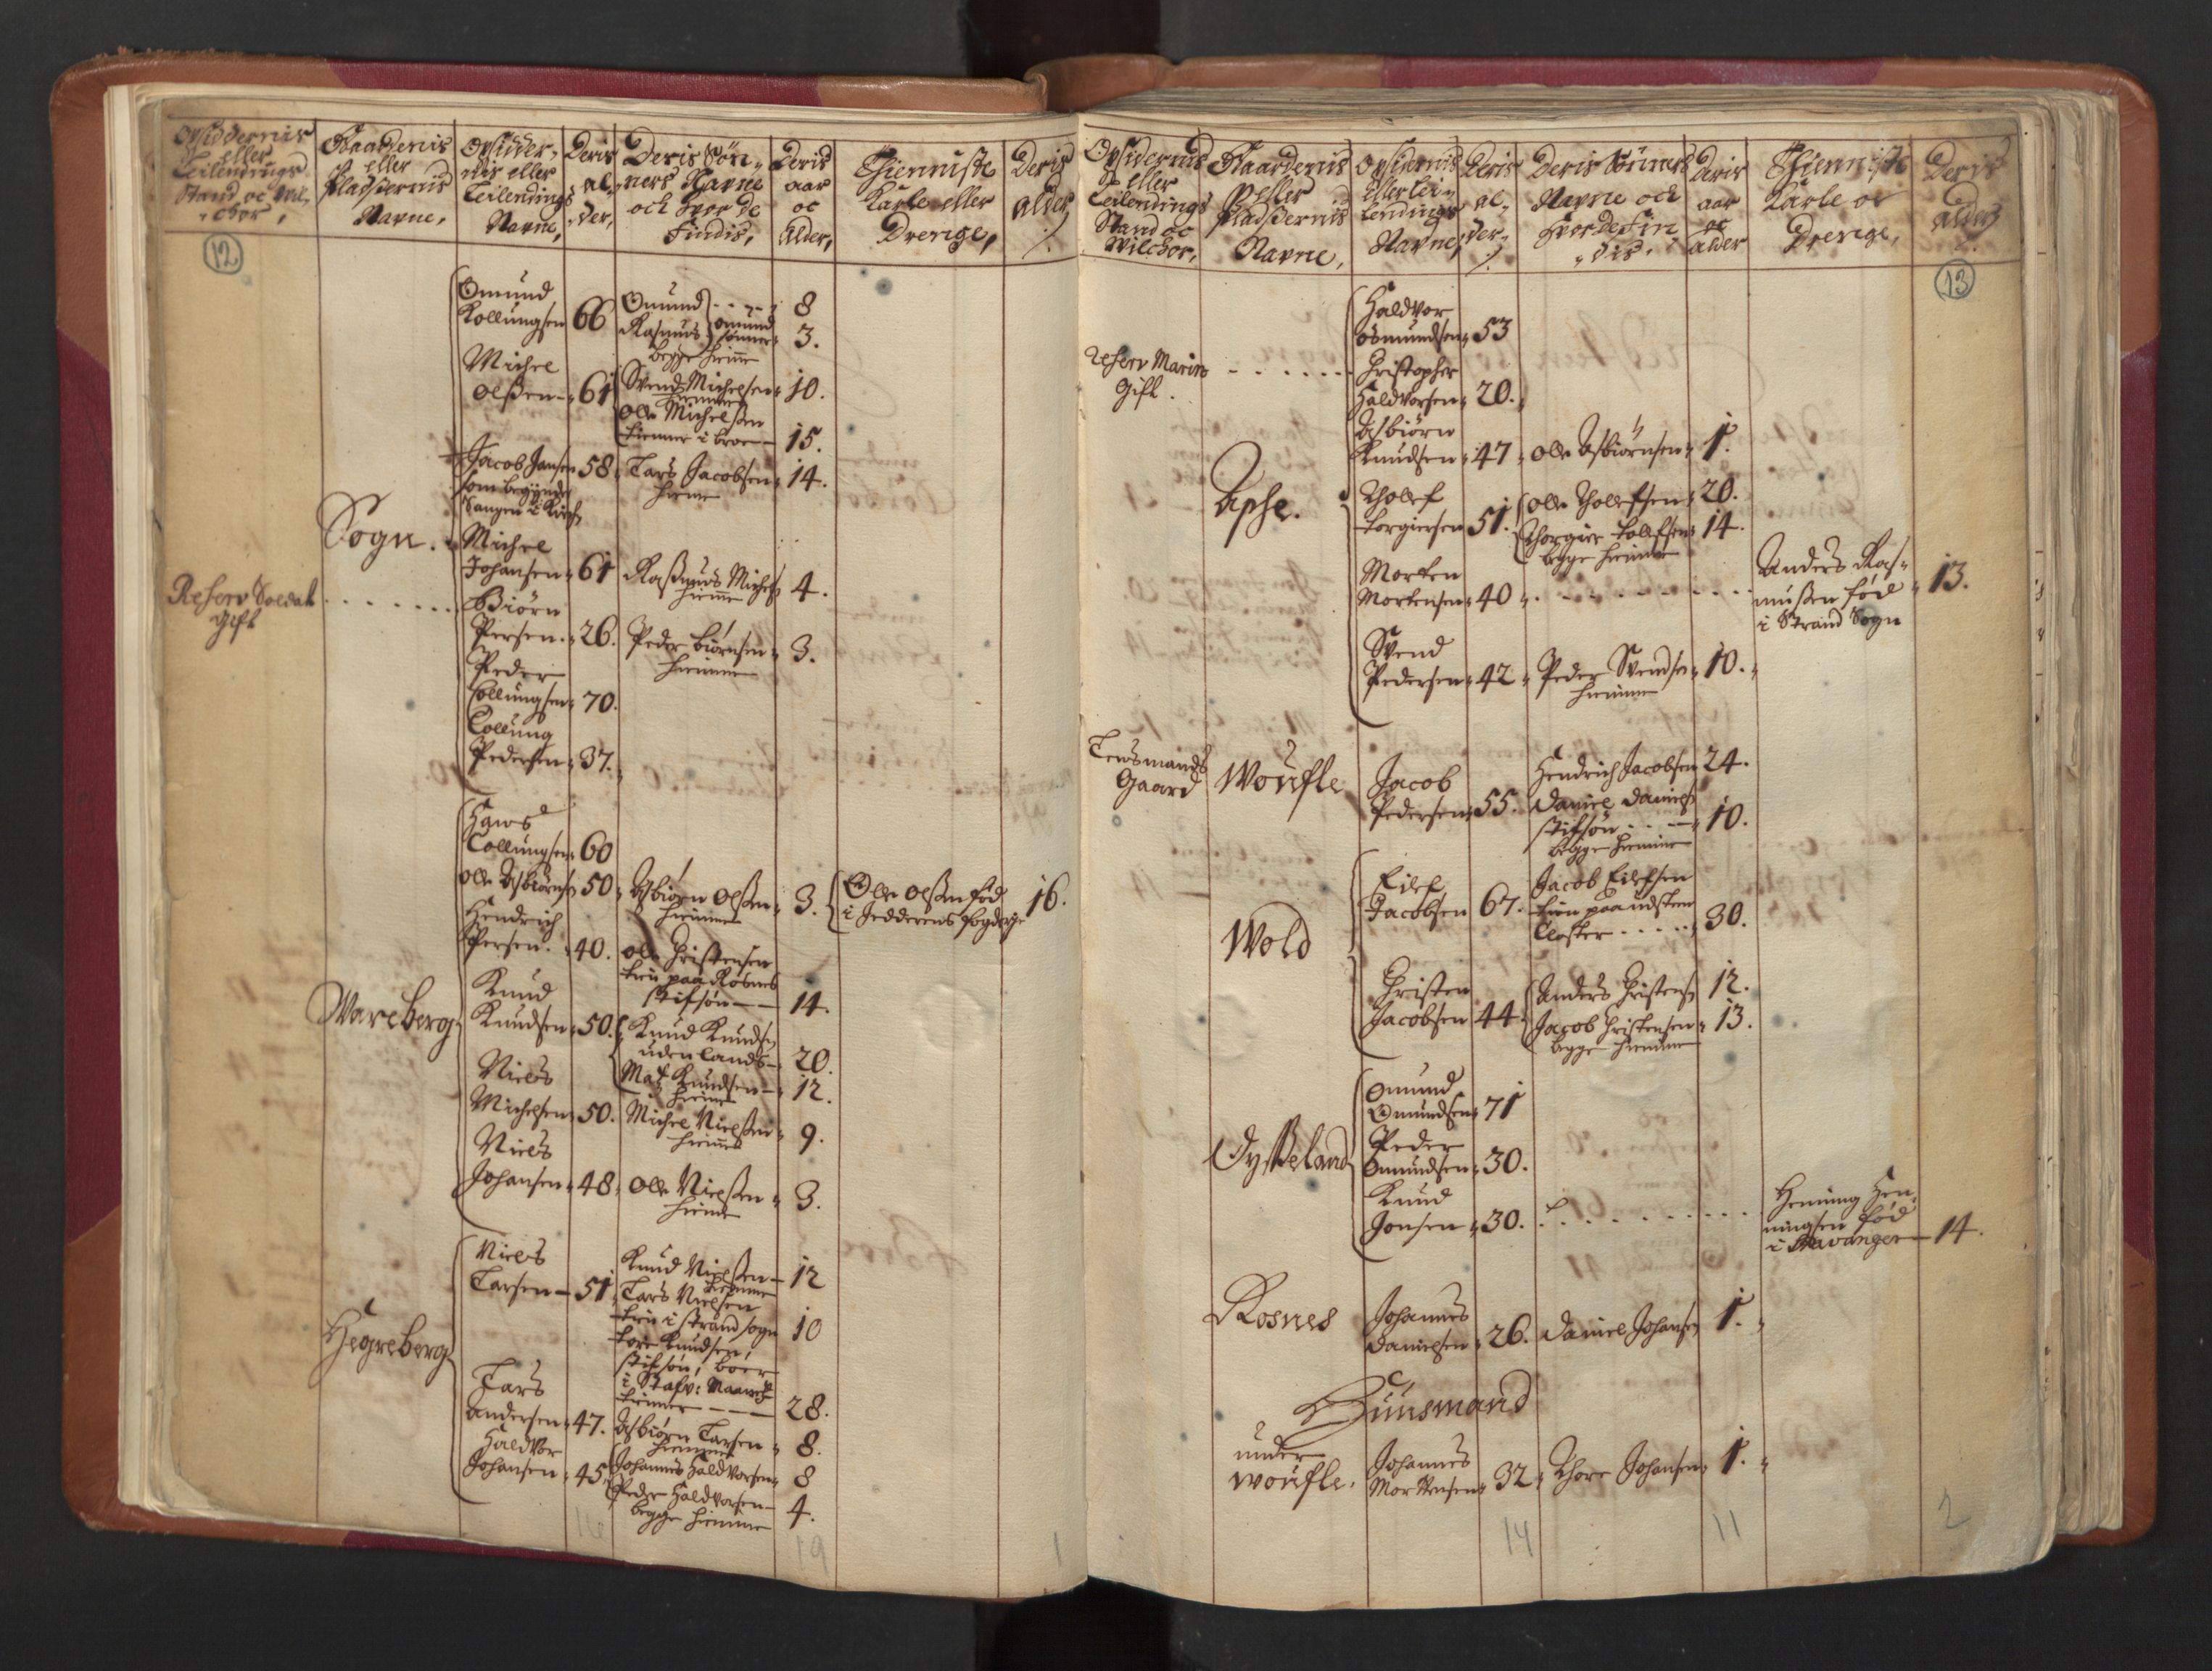 Opsiddernis
eller
Leilendings
Stand oc Wil-
chor,
Gaardenis
eller
Pladsernis
Navne,
Opsidder-
nis eller
Leilendings
Navne,
Deris
al-
der,
Deris Søn-
ners Navne
och hvor de
Findis,
Deris
aar
oc
Alder,
Thienniste
Karle eller
Drenge,
Deris
Alder
12
Omund
Kollungsen 66
Omund 8
Rasmus 3.
Omund
sønner
begge hiemme
Michel
Olßen 61
Svend Michelsen 10.
hiemme
Olle Michelßen
tienner i Broe 15.
Jacob Jansen 58
som begynder
Sangen i Kirch
Lars Jacobsen 14.
hieme
Sogn.
Michel
Johansen 61
Raßmus Michels 4.
hieme
Reserv Soldat
gift
Biörn
Persen. 26.
Peder Biörnsen 3.
hiemme
Peder
Collungsen 70.
Collung
Pedersen 37.
Wareberg
Hans
Collungsen 60
Olle Asbiörns 50
Asbiörn Olßen 3.
hiemme
Olle Olßen fød
i Jedderens fogderje 16.
Hendrich
Persen. 40.
Olle Christensen
tien paa Rosnes
stifsøn 14.
Knud
Knudsen 50.
Knud Knuds
udenlands 20.
Mat Knudsen 12.
hieme
Niels
Michelsen 50.
Michel Nielßen 9.
hieme
Niels
Johansen 48
Olle Nielßen 3.
hieme
Hegreberg
Niels
Larsen 51
Knud Nielßen 12
hiemme
Lars Nielsen
tien i Strand sogn 10
Tore Knudsen,
stifsøn, boer
i Stafv:
28.
Lars
Andersen 47.
Asbiörn Larsen 8.
hiemme
Haldvor
Johansen 45
Johannes Haldvorsen 8
Peder Haldvorsen 4.
begge hiemme
16
19
1
Opsidernis
eller
Leilendings
Stand oc
Wilchor,
Gaardenis
eller
Pladßernis
Navne,
Opsidernis
eller Lei-
lendings
Navne,
Deris
al-
der
Deris Sönners
Navne och
hvor de Fin
dis.
Deris
aar
oc
alder
Thienniste
Karle oc
Drenge,
Deris
Alder
13
Haldvor
Osmundsen 53
Reserv Marin
Gift.
Christopher
Haldvorsen 20.
Asbiörn
Knudsen 47
Olle Asbiörnsen 1.
Apse.
Tholef
Torgiersen 51.
Olle Tholefsen 20.
Thorgier Tolefsen 14.
begge hiemme
Morten
Mortensen 40
Anders Ras-
mußen fød
i Strand Sogn
13.
Svend
Pedersen 42
Peder Svendsen 10.
hiemme
Lensmands
Gaard
Woufle
Jacob
Pedersen 55.
Hendrich Jacobsen 24.
Daniel Daniels
stifsön 10.
begge hiemme
Wold
Eilef
Jacobsen 67.
Jacob Eilefsen
tien paa Udsten
Closter 30.
Christen
Jacobsen 44
Anders Christens 12.
Jacob Christensen 13.
begge hiemme
Dysseland
Omund
Omundsen 71
Peder
Omundsen 30.
Knud
Jonsen 30.
Hening Hen-
ningsen fød
i Stavanger 14.
Rosnes
Johannes
Danielsen 26.
Daniel Johans 1.
Huusmand
under
Woufle.
Johannes
Mortensen 32
Thore Johansen 1.
14
11
2